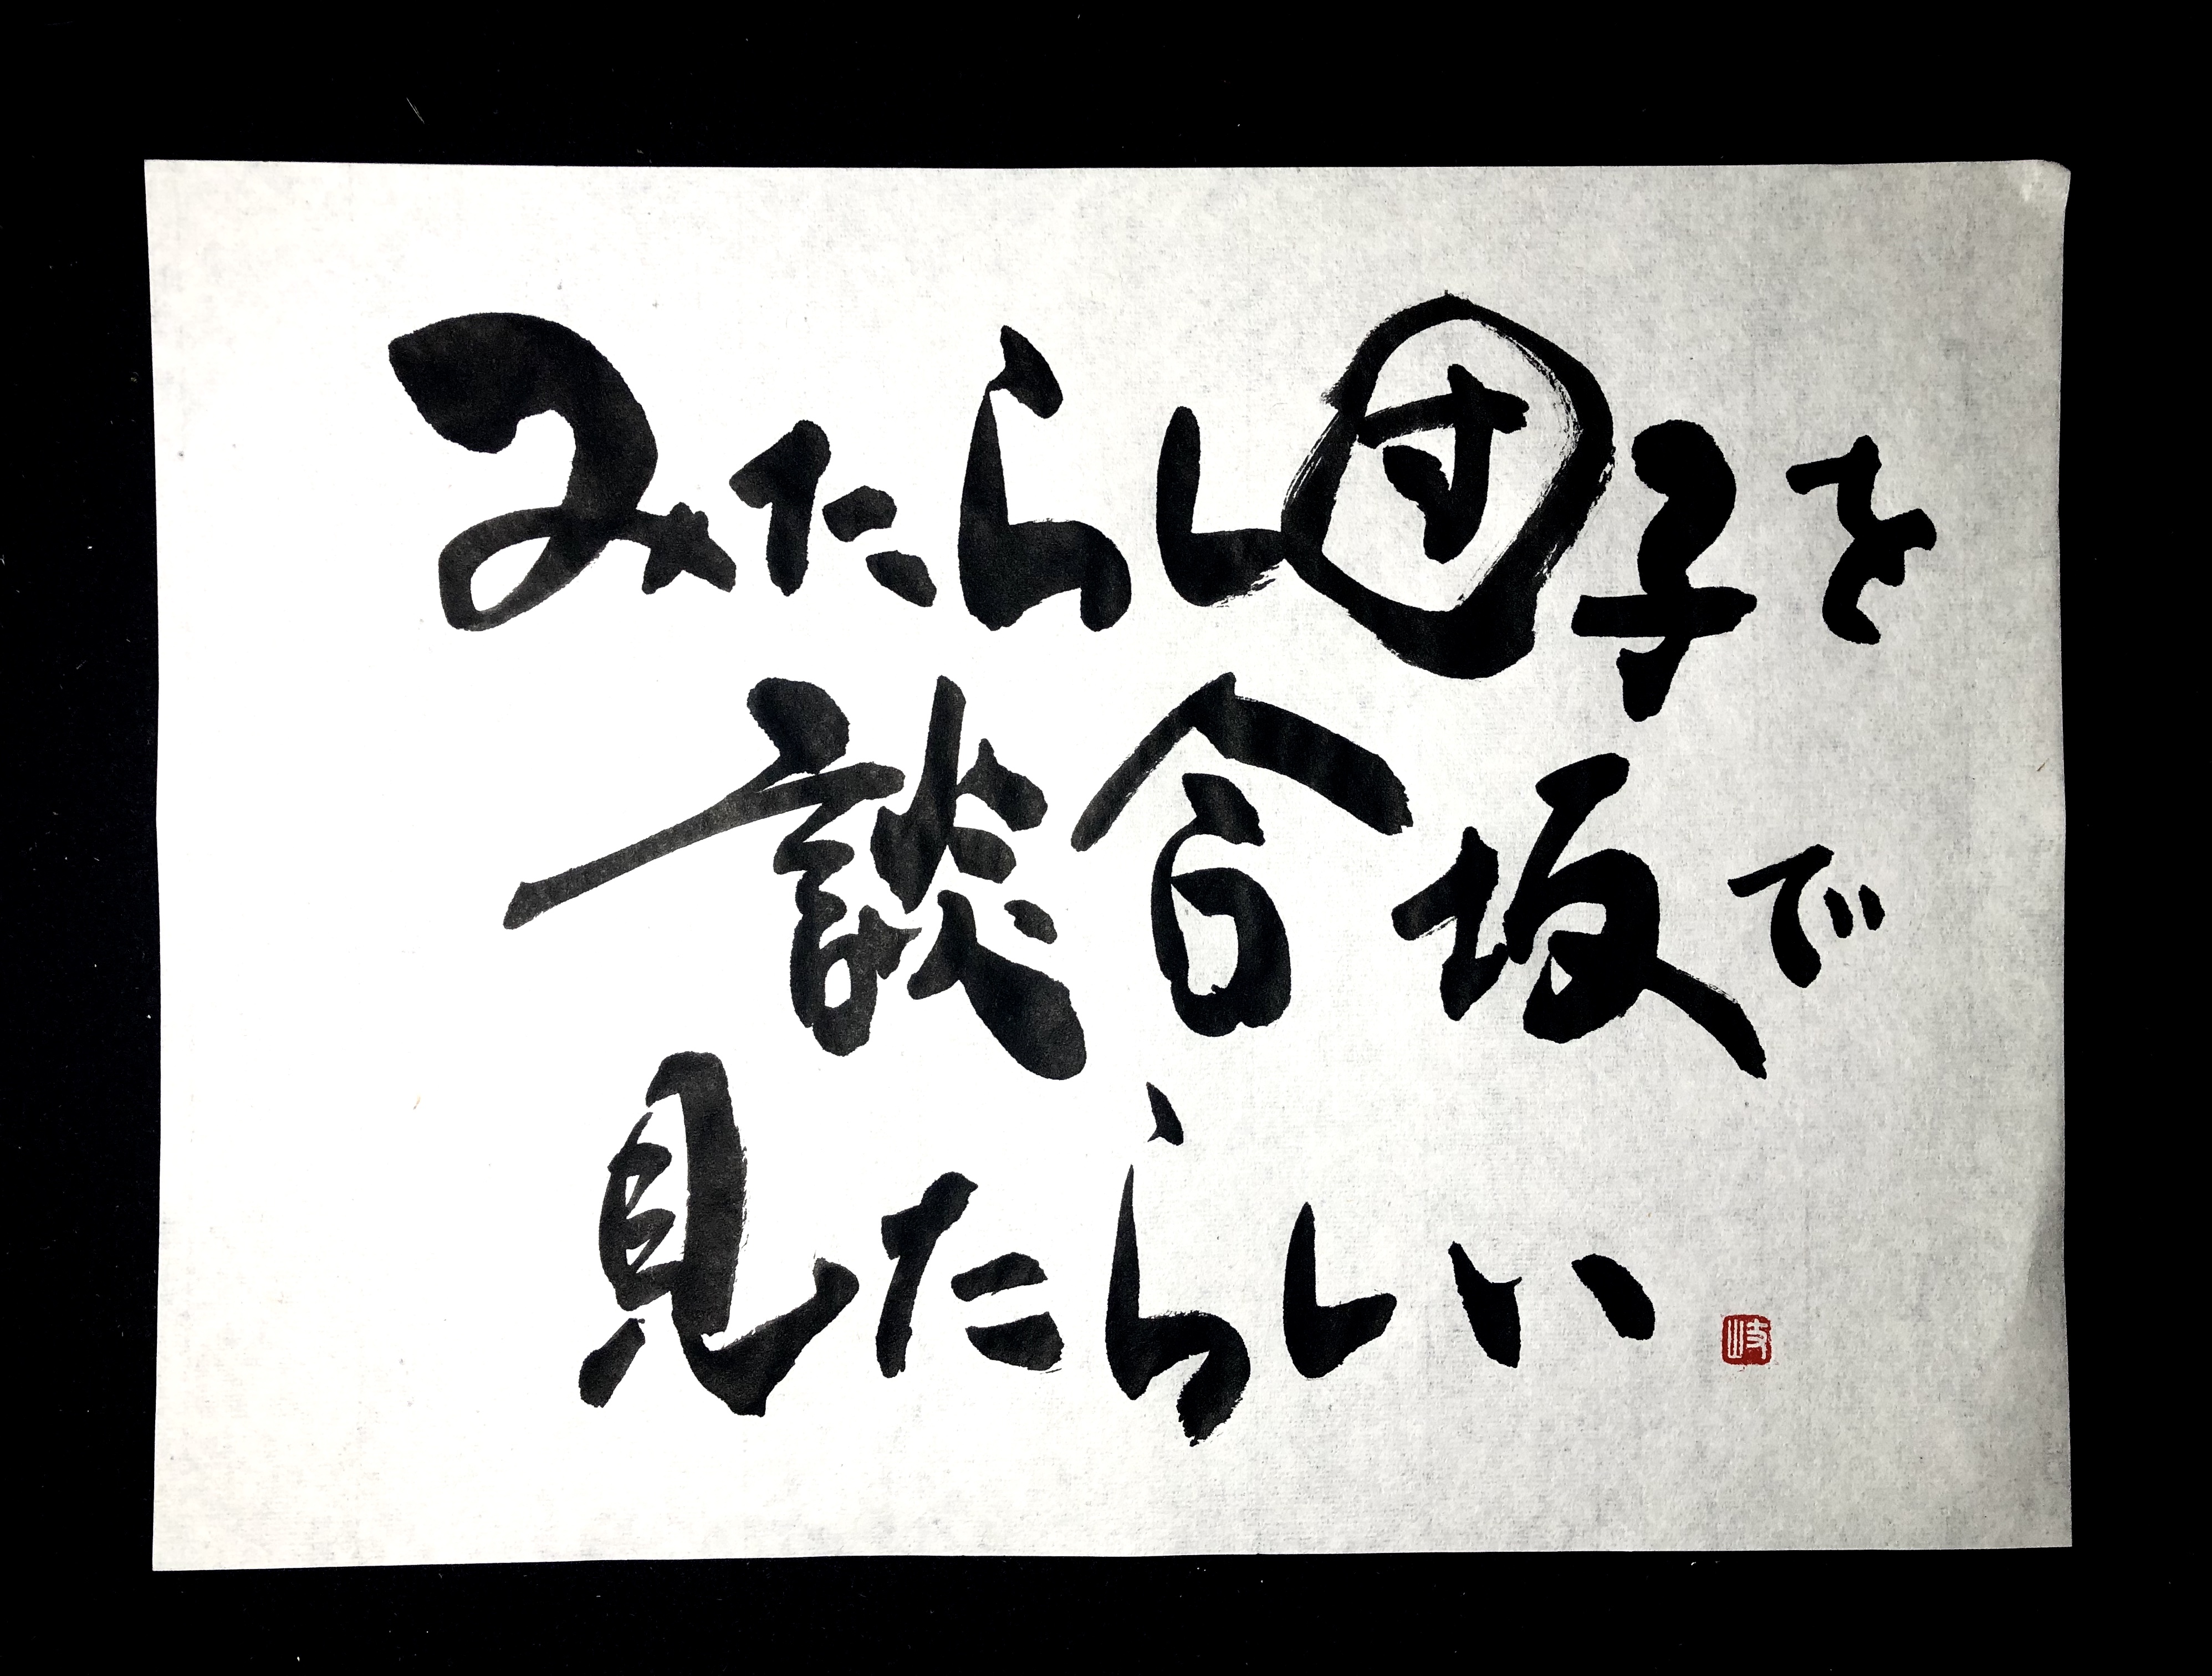 みたらし団子を
談合坂で
見たらしい
岐